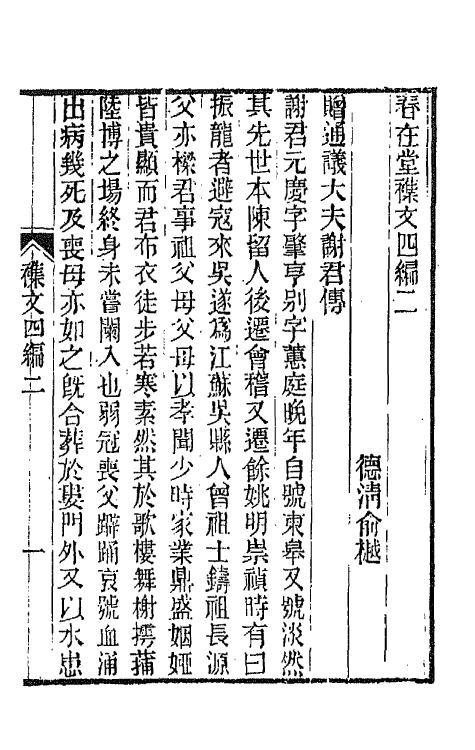 春在堂襍文四編二
德淸俞樾
贈通議大夫謝君傳
謝君元慶字肇亨別字蕙庭晚年自號東皋又號淡然
其先世本陳留人後遷會稽又遷餘姚明崇禎時有曰
振龍者避寇來吳遂爲江蘇吳縣人曾祖士鑄祖長源
父亦樑君事祖父母父母以孝聞少時家業鼎盛姻婭
皆貴顯而君布衣徒步若寒素然其於歌樓舞榭摴蒱
陸博之場終身未嘗闌入也弱冠喪父躃踊哀號血涌
出病幾死及喪母亦如之旣合葬於婁門外又以水患
襍文四編二
一